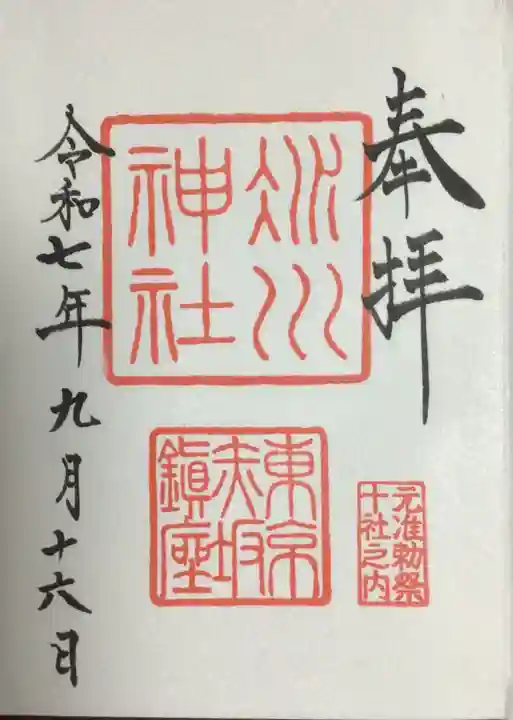 奉拝
元准勅祭
十社之内
氷川
神社
東京
赤坂
鎮座
令和七年九月十六日